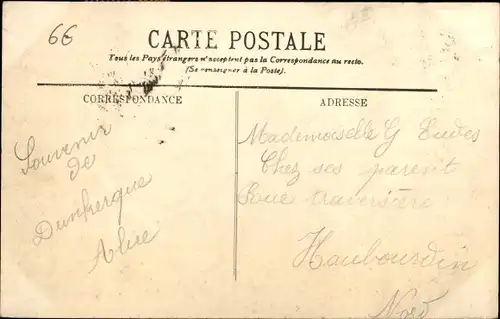 66
CARTE POSTALE
Tous les Pays étrangers n'acceptent pas la Correspondance au recto.
(Se renseigner à la Poste).
CORRESPONDANCE
Souvenir
de
Dunkerque
ADRESSE
Mademoiselle G Eudes
Chez ses parent
Rue traversière
Haubourdin
Nord